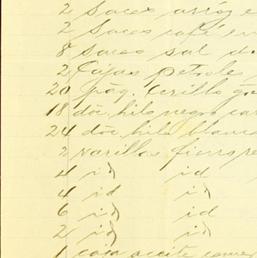 2 Sacos arroz e
2 Sacos café en
8 Sacos sal d
2 Cajas petroleo
20 paq. Cerillo go
18 doc. hilo negro car
24 doc. hilo blanco
2 varillas fierro re
4 id id
4 id id
6 id id
2 id id
1 caja aceite comer